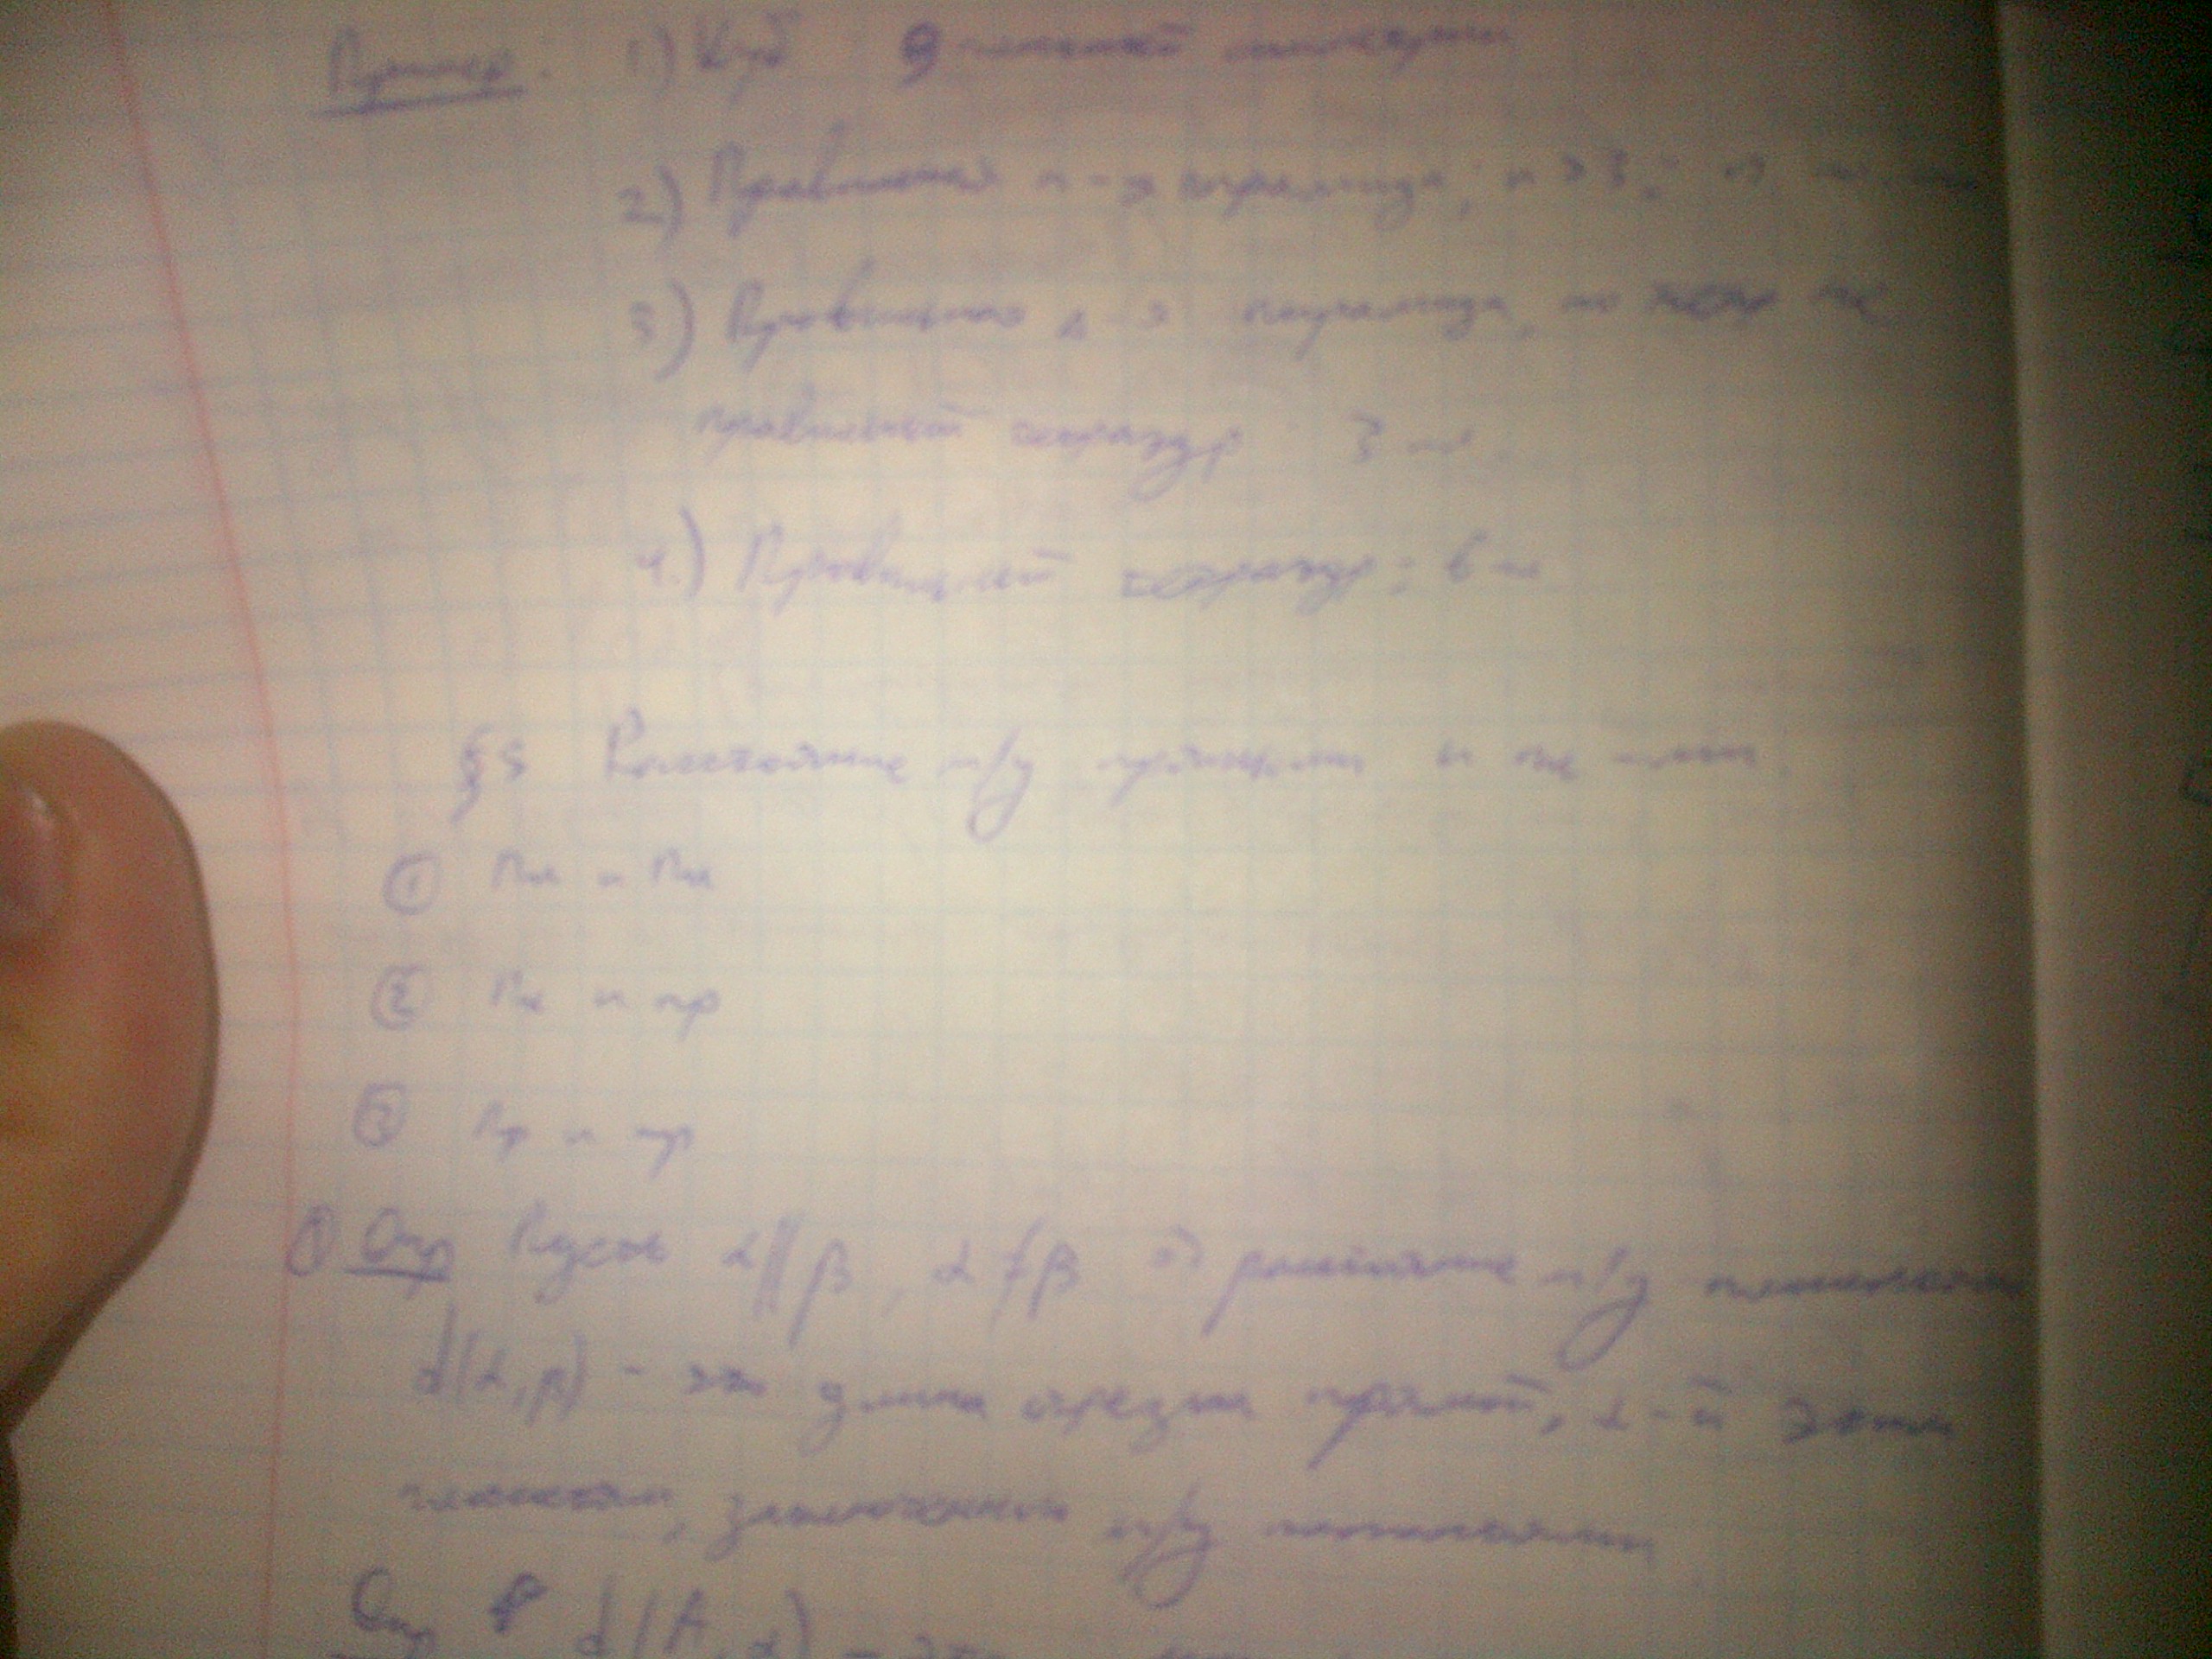 Пример. 1.) Куб 9 плоскостей симметрии
2) Правильная n-я пирамида, n > 3: n
3) Правильная Δ-я пирамида, но не
правильный тетраэдр 3
4.) Правильный тетраэдр: 6
§5 Расстояние м/у прямыми и пл-ми.
① Пл и Пл
② Пл и пр
③ Пр и пр
① Опр Пусть α || β, α ≠ β ⇒ расстояние м/у плоскостями
d(α, β) - это длина отрезка прямой, ⊥-й этим
плоскостям, заключенный м/у плоскостями
Опр d(A, α) - это